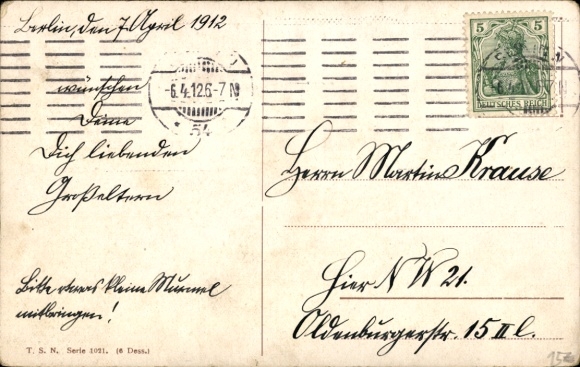 Berlin, den 7 April 1912
wünschen
Deine
Dich liebenden
Großeltern
Bitte etwas kleine
mitbringen!
T. S. N. Serie 1021. (6 Dess.)
5 5
DEUTSCHES REICH
-6.4.12.6-7 N
* 54
Herrn Martin Krause
Hier N W 21.
Oldenburgerstr. 15 II l.
15€